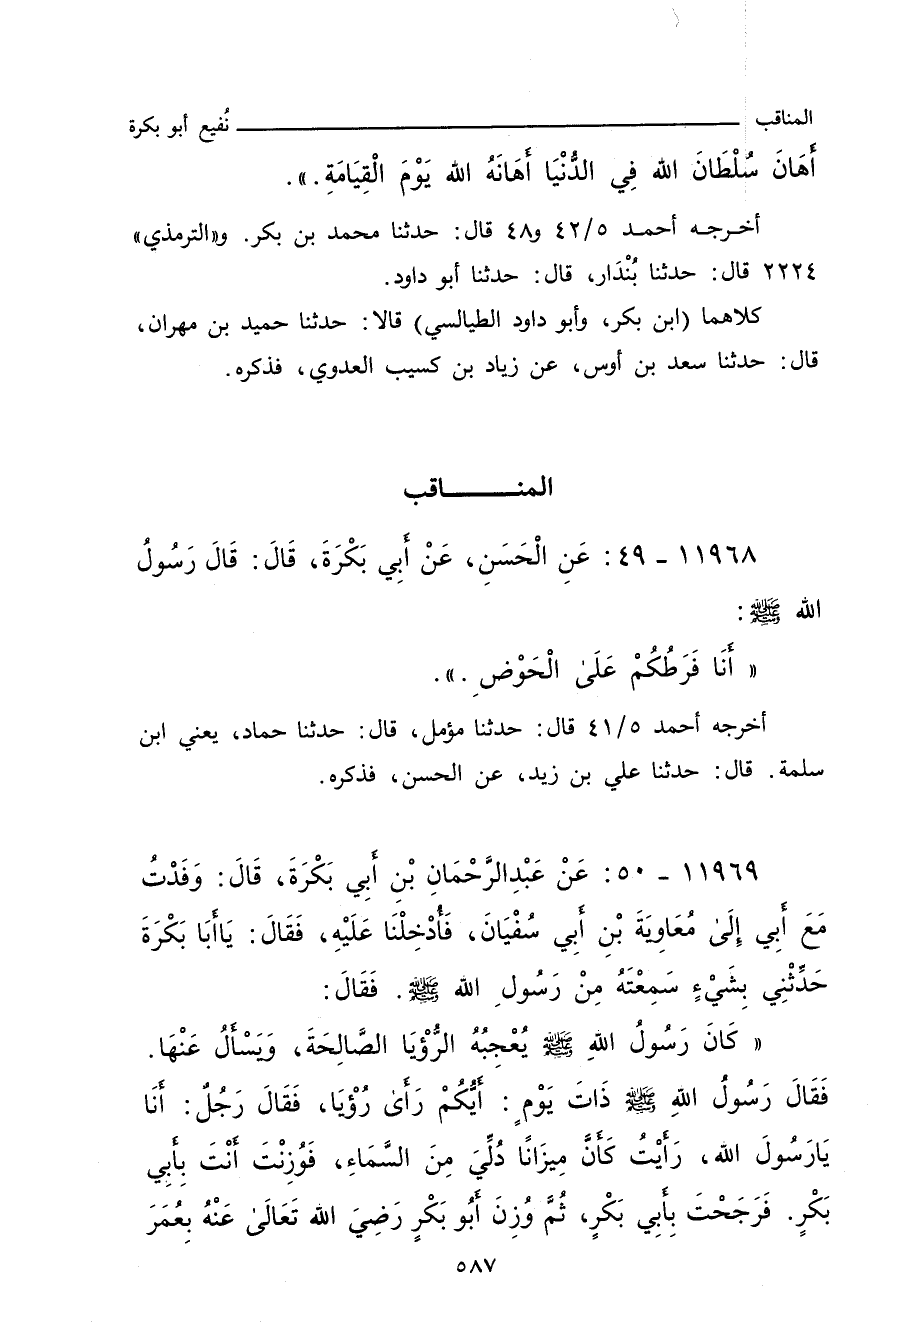 المناقب ــــــــــــ نُفيع أبو بكرة
أَهَانَ سُلْطَانَ الله فِي الدُّنْيَا أَهَانَهُ الله يَوْمَ الْقِيَامَةِ . ».
أخرجه أحمد ٤٢/٥ و٤٨ قال: حدثنا محمد بن بكر. و«الترمذي»
٢٢٢٤ قال: حدثنا بُنْدَار، قال: حدثنا أبو داود.
كلاهما (ابن بكر، وأبو داود الطيالسي) قالا: حدثنا حميد بن مهران،
قال: حدثنا سعد بن أوس، عن زياد بن كسيب العدوي، فذكره.
المنـــــــاقب
١١٩٦٨ - ٤٩: عَنِ الْحَسَنِ، عَنْ أَبِي بَكْرَةَ، قَالَ: قَالَ رَسُولُ
الله ﷺ:
« أَنَا فَرَطُكُمْ عَلَىٰ الْحَوْضِ . ».
أخرجه أحمد ٤١/٥ قال: حدثنا مؤمل، قال: حدثنا حماد، يعني ابن
سلمة. قال: حدثنا علي بن زيد، عن الحسن، فذكره.
١١٩٦٩ - ٥٠: عَنْ عَبْدِالرَّحْمَانِ بْنِ أَبِي بَكْرَةَ، قَالَ: وَفَدْتُ
مَعَ أَبِي إِلَىٰ مُعَاوِيَةَ بْنِ أَبِي سُفْيَانَ، فَأُدْخِلْنَا عَلَيْهِ، فَقَالَ: يَاأَبَا بَكْرَةَ
حَدِّثْنِي بِشَيْءٍ سَمِعْتَهُ مِنْ رَسُولِ الله ﷺ. فَقَالَ:
« كَانَ رَسُولُ اللهِ ﷺ يُعْجِبُهُ الرُّؤْيَا الصَّالِحَةَ، وَيَسْأَلُ عَنْهَا.
فَقَالَ رَسُولُ اللهِ ﷺ ذَاتَ يَوْمٍ: أَيُّكُمْ رَأَىٰ رُؤْيَا، فَقَالَ رَجُلٌ: أَنَا
يَارَسُولَ الله، رَأَيْتُ كَأَنَّ مِيزَانًا دُلِّيَ مِنَ السَّمَاءِ، فَوُزِنْتَ أَنْتَ بِأَبِي
بَكْرٍ. فَرَجَحْتَ بِأَبِي بَكْرٍ، ثُمَّ وُزِنَ أَبُو بَكْرٍ رَضِيَ الله تَعَالَىٰ عَنْهُ بِعُمَرَ
٥٨٧